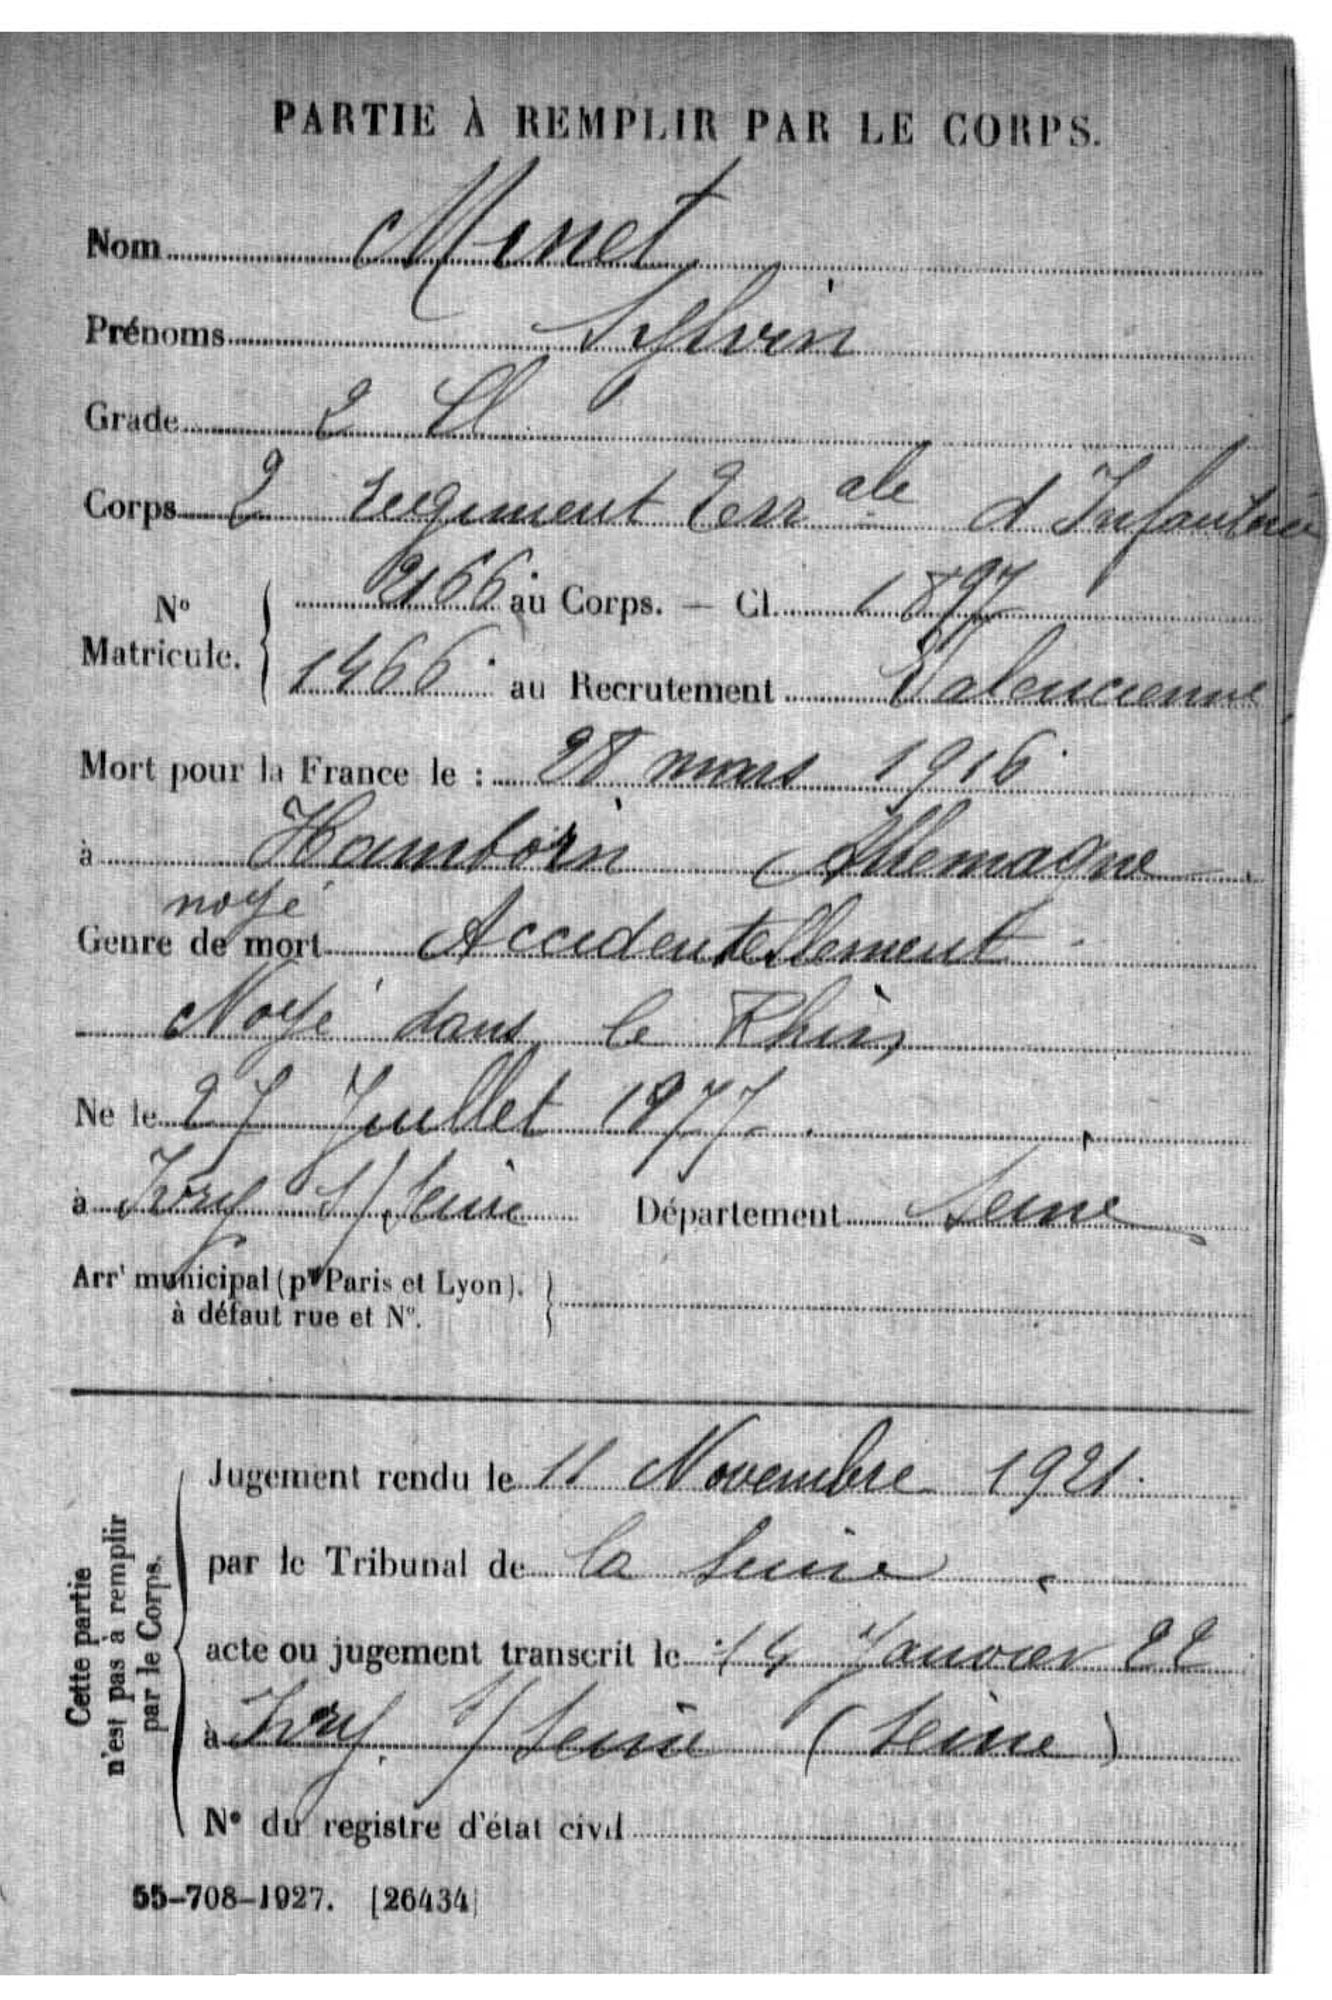 PARTIE À REMPLIR PAR LE CORPS.
Nom Minet
Prénoms Sylvin
Grade 2 Cl
Corps 2 Regiment Terr ale d'Infanterie
N° Matricule. 2166 au Corps. — Cl. 1897
1466 au Recrutement Valencienne
Mort pour la France le : 28 mars 1916
à Hamborn Allemagne
noyé
Genre de mort Accidentellement
Noyé dans le Rhin
Ne le 27 Juillet 1877
à Ivry S/Seine Département Seine
Arrt municipal (pr Paris et Lyon).
à défaut rue et N°.
Cette partie n'est pas à remplir par le Corps.
Jugement rendu le 11 Novembre 1921
par le Tribunal de la Seine
acte ou jugement transcrit le 14 Janvier 22
à Ivry S/Seine (Seine)
N° du registre d'état civil
55-708-1927. [26434]